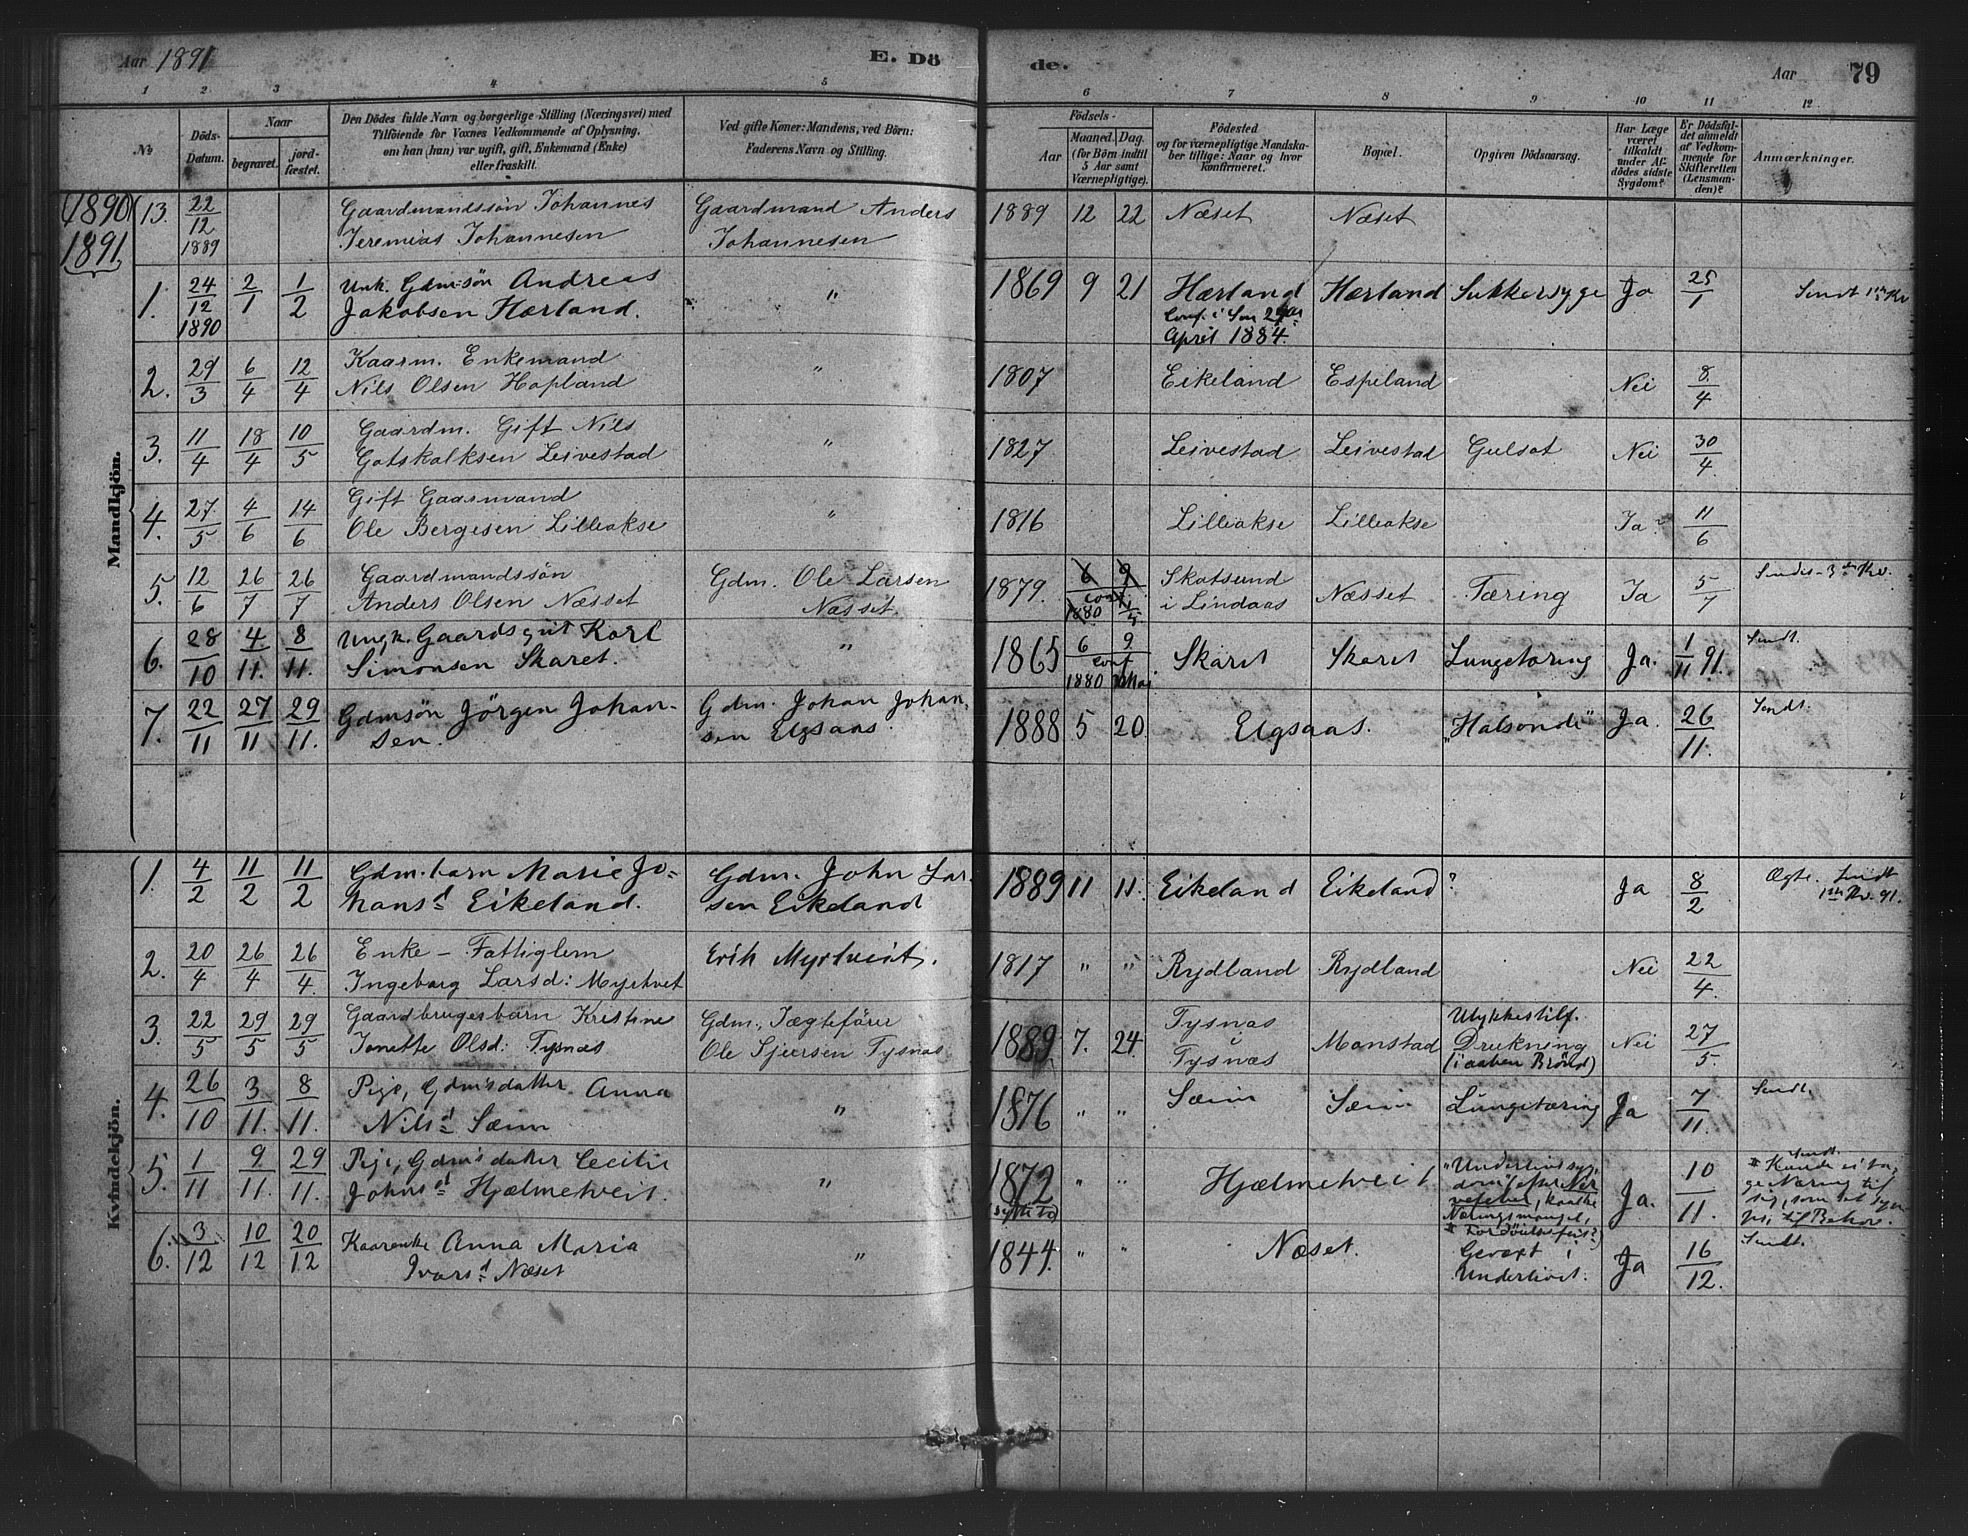 Aar 1891
E. Dö
de.
Aar 79
1 2 3 4 5 6 7 8 9 10 11 12
№
Döds-Datum.
Naar
begravet.
jordfæstet.
Den Dödes fulde Navn og borgerlige Stilling (Næringsvei) med
Tilföiende for Voxnes Vedkommende af Oplysning.
om han (hun) var ugift, gift, Enkemand (Enke)
eller fraskilt.
Ved gifte Koner: Mandens, ved Börn:
Faderens Navn og Stilling.
Födsels-
Aar
Maaned. Dag.
(for Börn indtil
5 Aar samt
Værnepligtige).
Födested
og for værnepligtige Mandska-
ber tillige: Naar og hvor
konfirmeret.
Bopæl.
Opgiven Dödsaarsag.
Har Læge
været
tilkaldt
under Af-
dödes sidste
Sygdom?
Er Dödsfal-
det anmeldt
af Vedkom-
mende for
Skifteretten
(Lensman-
den)?
Anmærkninger.
1890
1891
Mandkjön.
13. 22/12 1889 Gaardmandssön Johannes Gaardmand Anders 1889 12 22 Næset Næset
Jeremias Johannesen Johannesen
1. 24/12 1890 2/1 1/2 Unk. Gdm.sön Andreas " 1869 9 21 Hærland Hærland Sukkersyge Ja 25/1 Sendt 1ste Kv
Jakobsen Hærland. Conf. i
April 1884.
2. 29/3 6/4 12/4 Kaarm. Enkemand " 1807 Eikeland Espeland Nei 8/4
Nils Olsen Hopland
3. 11/4 18/4 10/5 Gaardm. Gift Nils " 1827 Leivestad Leivestad Gulsot Nei 30/4
Gotskalksen Leivestad
4. 27/5 4/6 14/6 Gift Gaarmand " 1816 Lilleakse Lilleakse Ja 11/6
Ole Bergesen Lilleakse
5. 12/6 26/7 26/7 Gaardmandssön Gdm. Ole Larsen 1879. 6 9 Skotsund Næsset Tæring Ja 5/7 Sendt 3die Kv.
Anders Olsen Næsset Næsset. conf. 1880 i Lindaas
6. 28/10 4./11. 8/11. Ungk. Gaardsgut Karl " 1865 6 9 Skaret Skaret Lungetæring Ja. 1/11 91. Sendt.
Simonsen Skaret. Conf 1880 Mai
7. 22/11 27/11 29/11. Gdmsön Jörgen Johan- Gdm. Johan Johan- 1888 5 20. Elgsaas. "Halsonde" Ja. 26/11. Sendt.
sen. sen Elgsaas.
Kvindekjön.
1. 4/2 11/2 11/2 Gdm.barn Marie Jo- Gdm. John Lar- 1889 11 11. Eikeland Eikeland ? Ja 8/2 Ægte. Sendt
hansd Eikeland. sen Eikeland 1ste Kv. 91.
2. 20/4 26/4 26/4. Enke - Fattiglem Erik Myrtveit. 1817 " " Rydland Rydland Nei 22/4.
Ingeborg Larsd: Myrtvet
3. 22/5 29/5 29/5 Gaardbrugerbarn Kristine Gdm., Jægtefører 1889 7. 24. Tysnæs Monstad Ulykkestilf. Nei 27/5.
Jonette Olsd: Tysnæs Ole Sjursen Tysnæs Tysnæs Drukning
(i aaben Brönd)
4. 26/10 3/11. 8/11. Pige, Gdm'sdatter Anna " 1876 " " Sæim Sæim Lungetæring Ja 7/11. Sendt.
Nilsd Sæim
5. 1/11 9/11. 29/11. Pige, Gdm'sdatter Cecilie " 1872 " " Hjælmetveit "Underlivssyg- Ja. 10/11. Sendt.
Johnsd Hjælmetveit. dom (efter Ner-
vefeber, kanske
Næringsmangel,
Kunde ei ta-
ge Næring til
sig, som det
til Behov.
6. 3/12 10/12 20/12 Kaarenke Anna Maria " 1844. " " Næset. Gevæxt i Ja 16/12. Sendt.
Ivarsd Næset Underlivet.